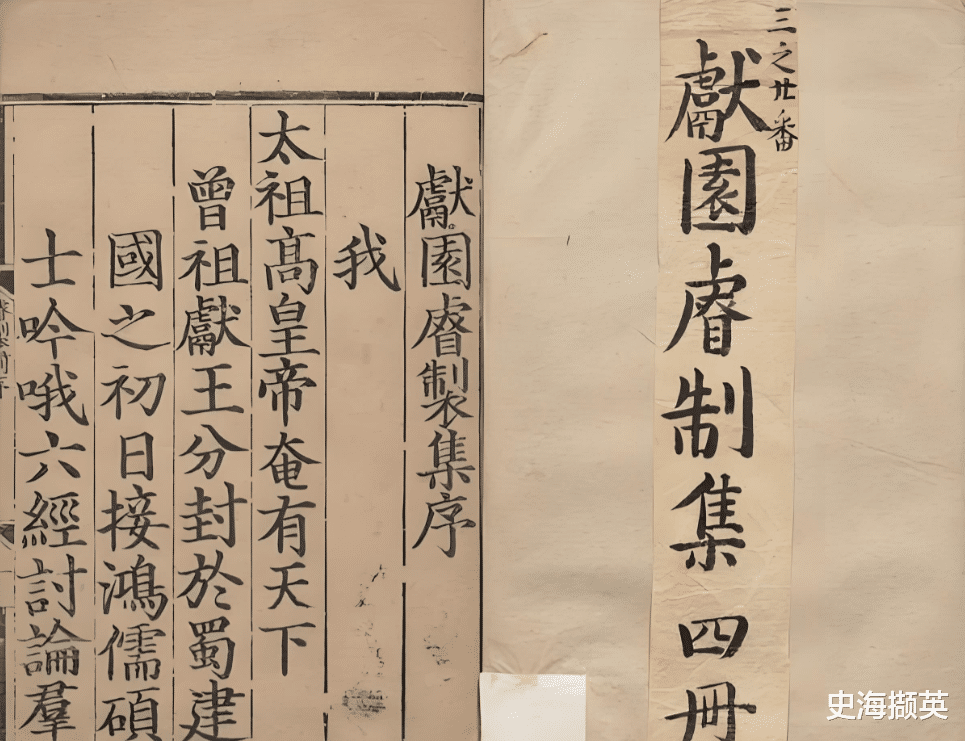 三之廿番
獻園睿制集 四冊
獻園睿製集序
我
太祖髙皇帝奄有天下
曾祖獻王分封於蜀建
國之初日接鴻儒碩
士吟哦六經討論羣
史海撷英